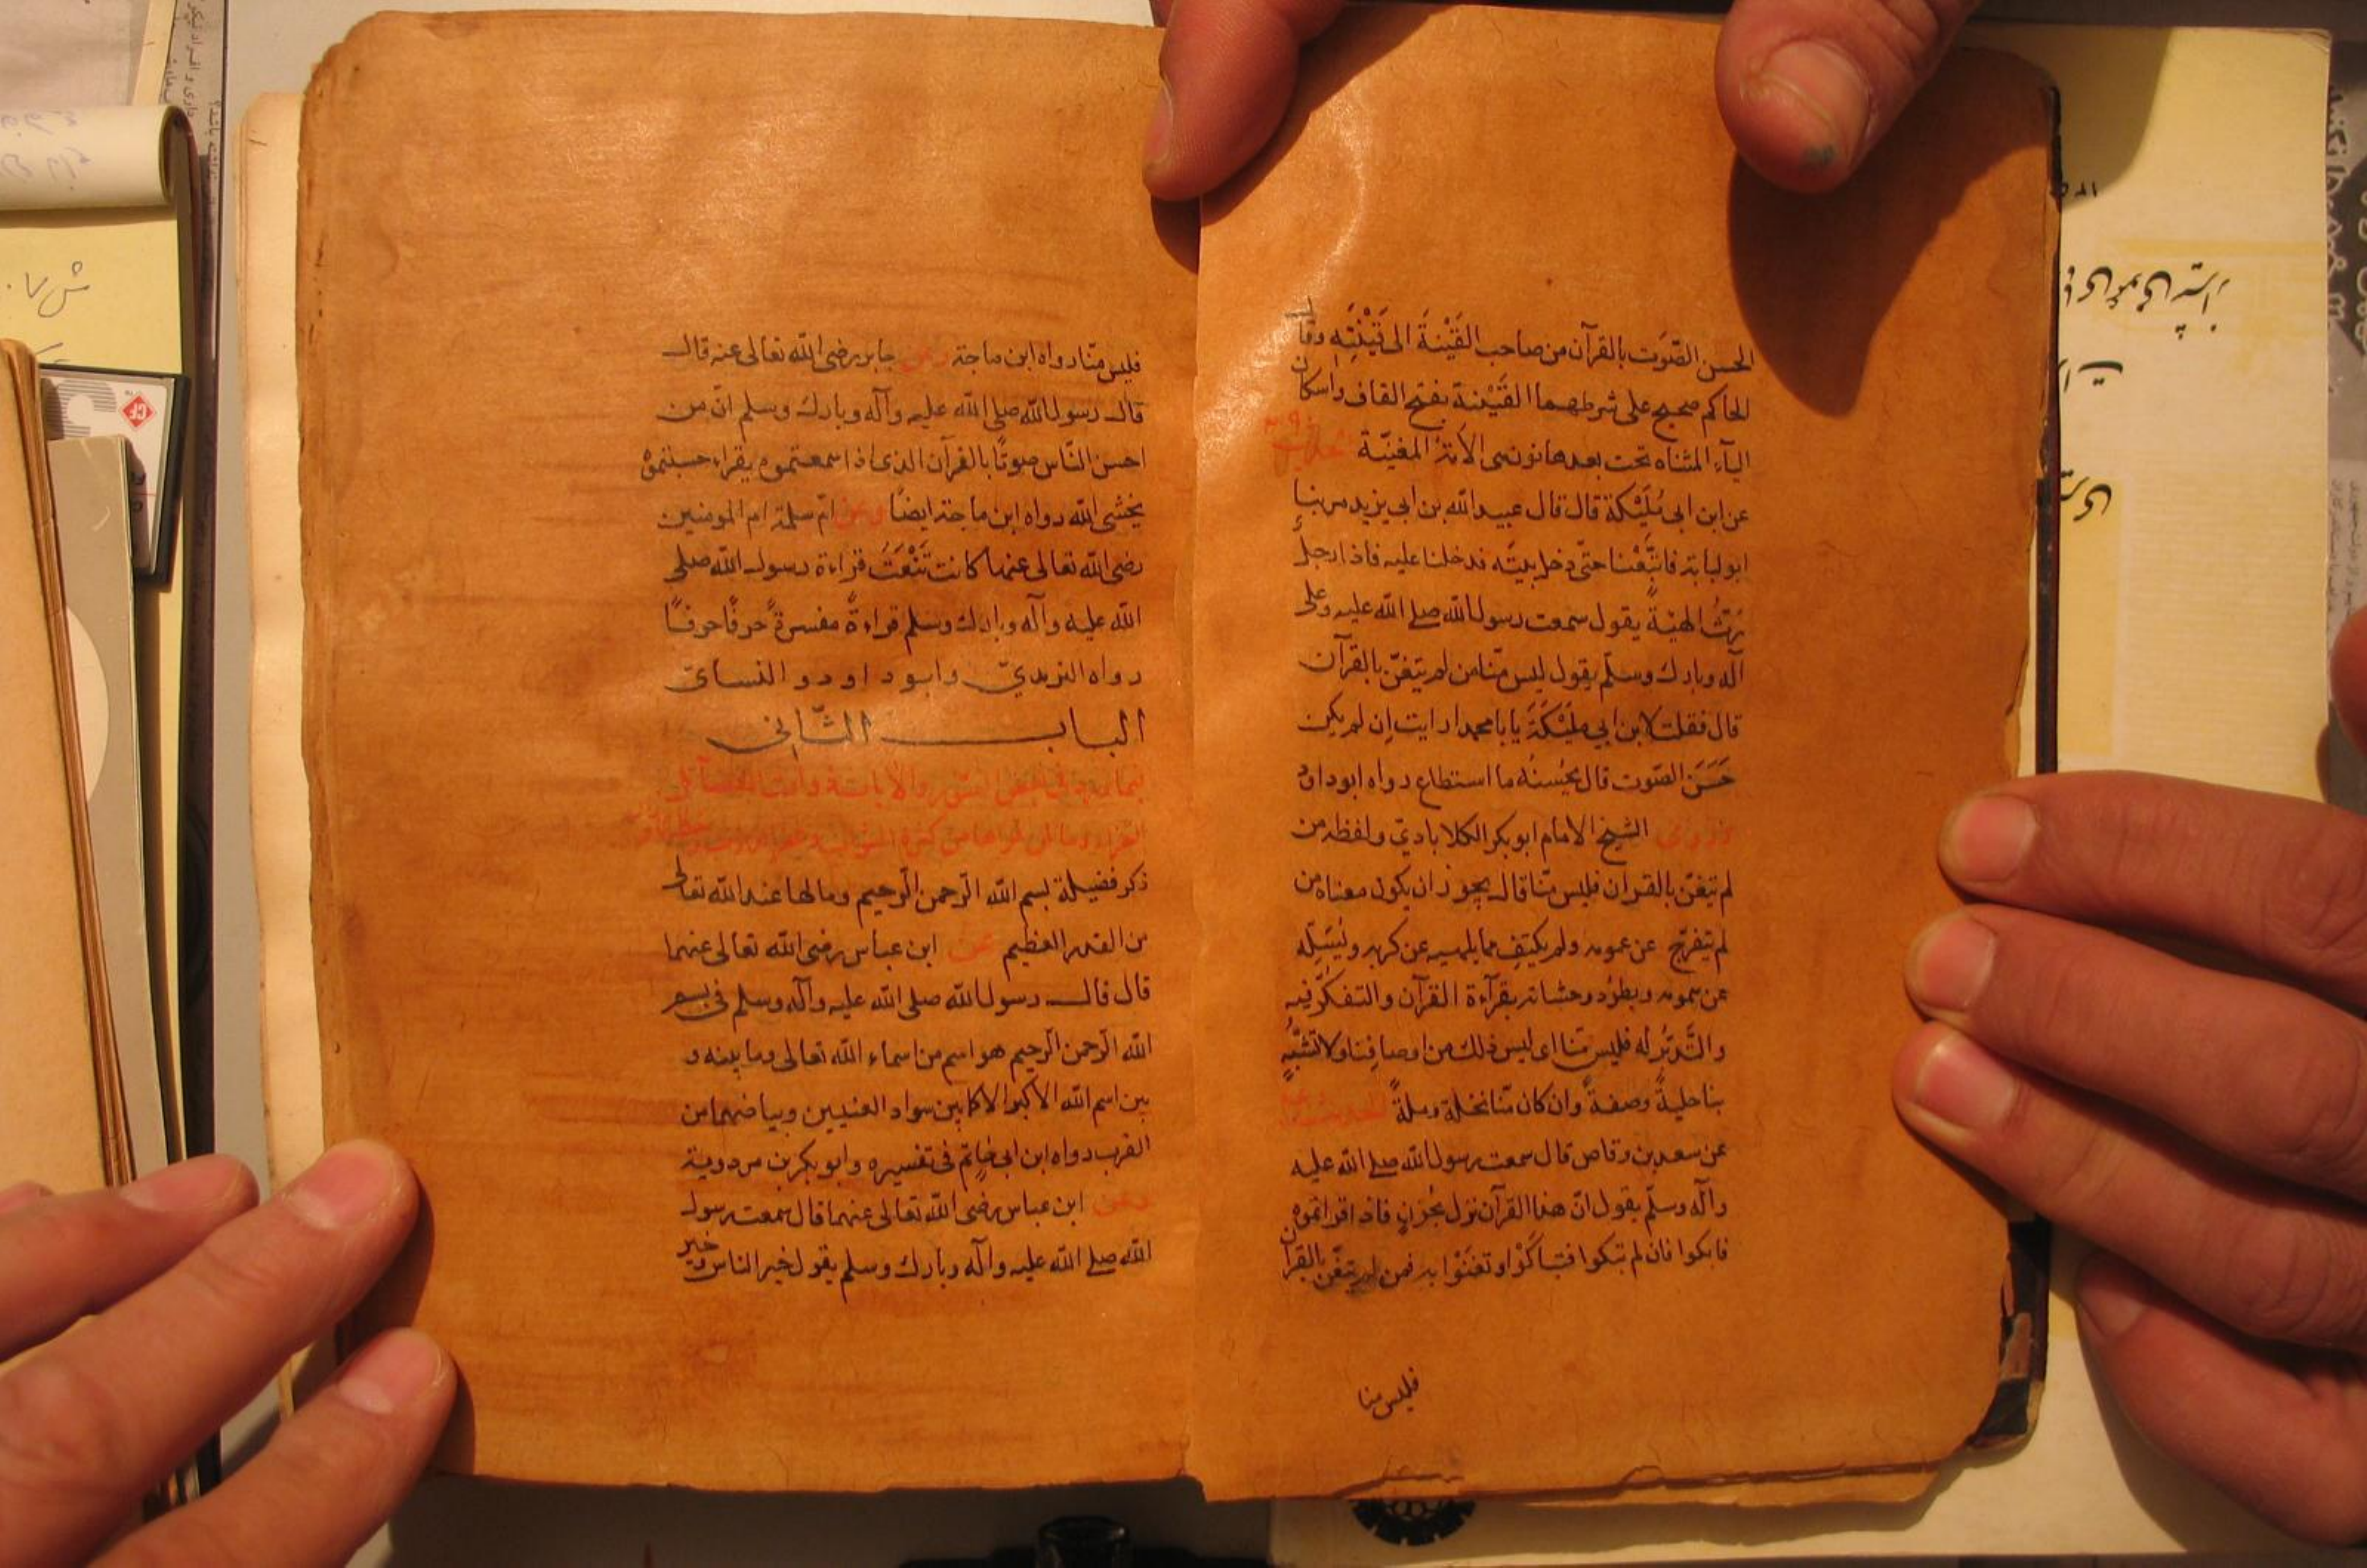 الحسن الصَّوت بالقرآن من صاحب القَيْنَةَ الى قَيْنَتِهِ وقال
الحاكم صحيح على شرطهما القَيْنة بفتح القاف واسكان
اليآء المثناه تحت بعدها نون هى الأمَةُ المغنيّة
عن ابن ابى مُلَيْكة قال قال عبيد الله بن ابي يزيد مر بنا
ابو لبابة فاتَّبَعْنا حتّى دخل بيتَه فدخلنا عليه فاذا رجلٌ
رَثُّ الهيْئة يقول سمعت رسول الله صلى الله عليه وعلى
آله وبارك وسلّم يقول ليس منّا من لم يتغنّ بالقرآن
قال فقلت لابن ابي مليْكَةَ يا با محمد ارايت اِن لم يكن
حَسَنَ الصّوت قال يُحسنُه ما استطاع رواه ابو داود
وروى الشيخ الامام ابو بكر الكلاباديّ ولفظه من
لم يتغنّ بالقرآن فليس منّا قال يجوز ان يكون معناه من
لم يتفرّج عن غمومه ولم يكتفِ مما يلهيه عن كربه ويُسَلِّه
عن همومه ويطرُد وحشاته بقرآءة القرآن والتفكّر فيه
والتَّدبُّر له فليس منّا اى ليس ذلك من اوصافنا ولا تشبُّهٍ
بنا حليةً وصفةً وان كان منّا نحلة وملةً الحديث
عن سعد بن وقاص قال سمعت رسول الله صلى الله عليه
وآله وسلّم يقول انّ هذا القرآن نزل بحُزنٍ فاذا قراتموه
فابكوا فان لم تبكوا فتباكَوْا وتغنَوْا به فمن لم يتغنّ بالقرآن
فليس منا
فليس منّا رواه ابن ماجة وعن جابر رضى الله تعالى عنه قال
قال رسول الله صلى الله عليه وآله وبارك وسلم انّ من
احسن النّاس صوتًا بالقرآن الذى اذا سمعتموه يقراء حسبتموهُ
يخشى الله رواه ابن ماجة ايضًا وعن امّ سلمة ام المومنين
رضى الله تعالى عنها كانت تَنْعَتُ قراءة رسول الله صلى
الله عليه وآله وبارك وسلم قراءةً مفسرةً حرفًا حرفًا
رواه الترمذيّ وابو داود والنسائ
الباب الثّانى
ذكر فضيلة بسم الله الرّحمن الرّحيم وما لها عند الله تعالى
من القدر العظيم عن ابن عباس رضى الله تعالى عنهما
قال قال رسول الله صلى الله عليه وآله وسلم فى بسم
الله الرّحمن الرّحيم هو اسم من اسماء الله تعالى وما بينه و
بين اسم الله الأكبر الا كما بين سواد العينين وبياضهما من
القرب رواه ابن ابى حاتم فى تفسيره وابو بكر بن مردوية
وعن ابن عباس رضى الله تعالى عنهما قال سمعت رسول
الله صلى الله عليه وآله وبارك وسلم يقول خير الناس وخير